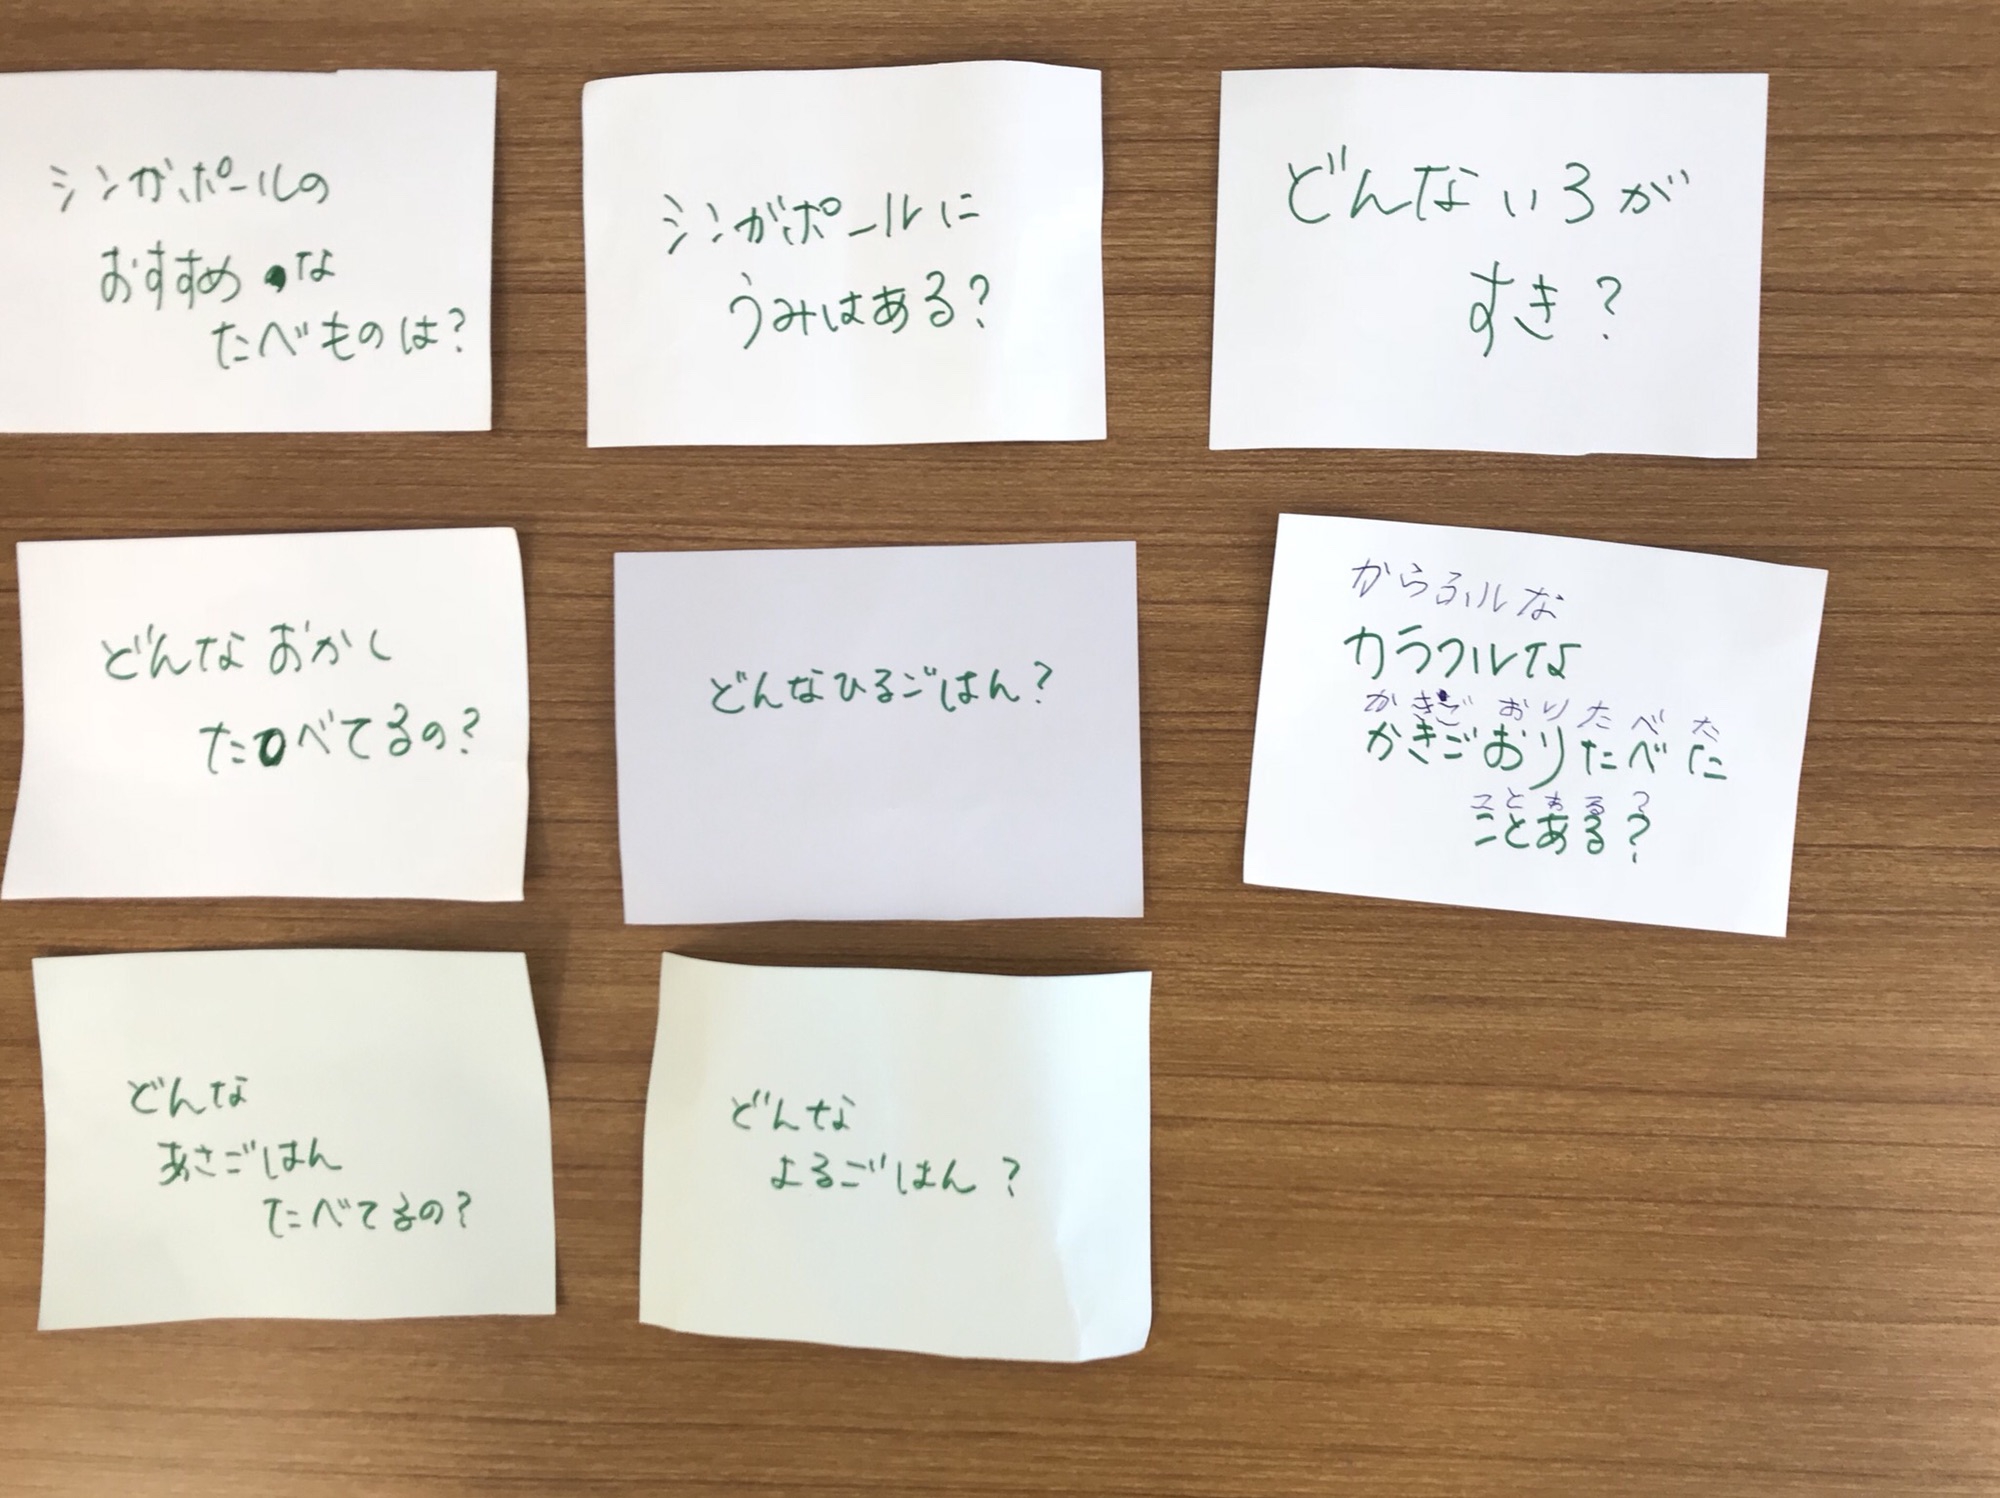 シンガポールの
おすすめな
たべものは?
シンガポールに
うみはある?
どんないろが
すき?
どんなおかし
たべてるの?
どんなひるごはん?
からふルな
カラフルな
かきごおりたべた
かきごおりたべた
ことある?
ことある?
どんな
あさごはん
たべてるの?
どんな
よるごはん?